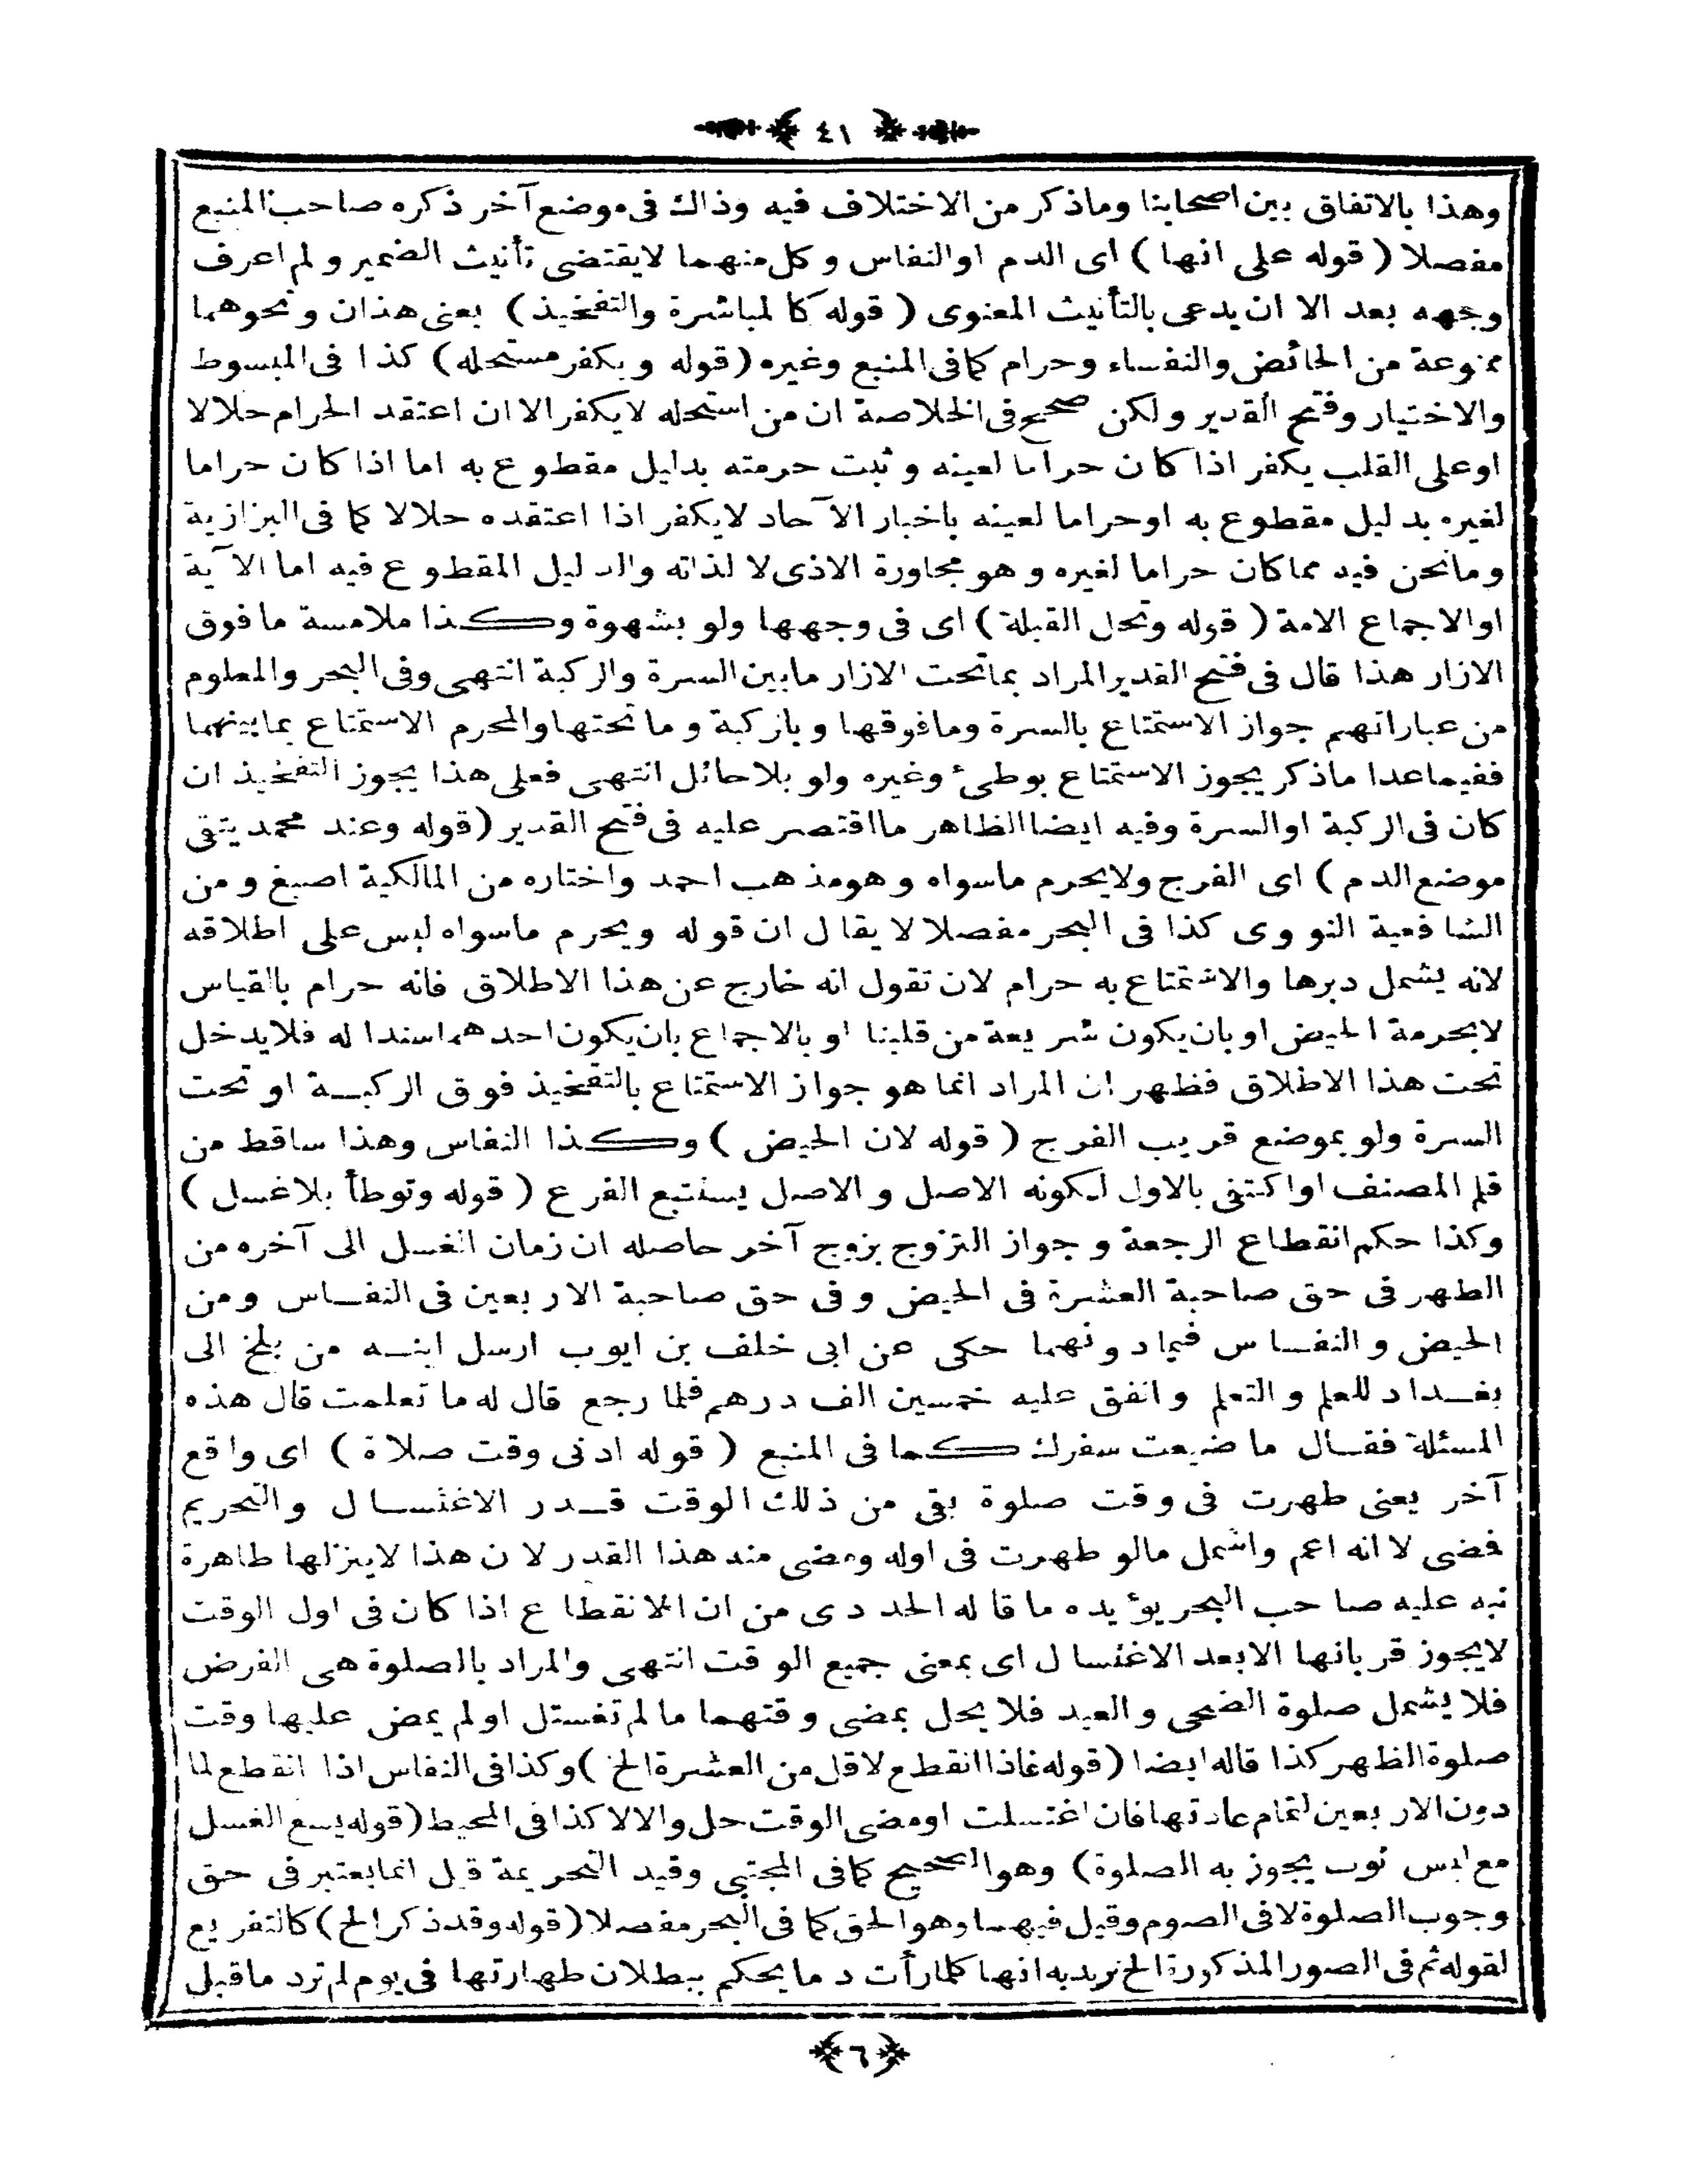 ٤١
وهذا بالاتفاق بين اصحابنا وماذكر من الاختلاف فيه وذاك فى موضع آخر ذكره صاحب المنبع
مفصلا ( قوله على انها ) اى الدم او النفاس وكل منهما لايقتضى تأنيث الضمير ولم اعرف
وجهه بعد الا ان يدعى بالتأنيث المعنوى ( قوله كالمباشرة والتفخيذ ) يعنى هذان ونحوهما
ممنوعة من الحائض والنفساء وحرام كما فى المنبع وغيره ( قوله ويكفر مستحله ) كذا فى المبسوط
والاختيار وفتح القدير ولكن صحح فى الخلاصة ان من استحله لايكفر الا ان اعتقد الحرام حلالا
اوعلى القلب يكفر اذا كان حراما لعينه وثبت حرمته بدليل مقطوع به اما اذا كان حراما
لغيره بدليل مقطوع به اوحراما لعينه باخبار الآحاد لايكفر اذا اعتقده حلالا كما فى البزازية
ومانحن فيه مما كان حراما لغيره وهو مجاورة الاذى لا لذاته والدليل المقطوع فيه اما الآية
اوالاجماع الامة ( قوله وتحل القبلة ) اى فى وجهها ولو بشهوة وكذا ملامسة ما فوق
الازار هذا قال فى فتح القدير المراد بماتحت الازار مابين السرة والركبة انتهى وفى البحر والمعلوم
من عباراتهم جواز الاستمتاع بالسرة ومافوقها وبالركبة وما تحتها والمحرم الاستمتاع بما بينهما
ففيما عدا ماذكر يجوز الاستمتاع بوطىء وغيره ولو بلا حائل انتهى فعلى هذا يجوز التفخيذ ان
كان فى الركبة اوالسرة وفيه ايضا الظاهر ما اقتصر عليه فى فتح القدير ( قوله وعند محمد يتقى
موضع الدم ) اى الفرج ولايحرم ماسواه وهومذهب احمد واختاره من المالكية اصبغ ومن
الشافعية النووى كذا فى البحر مفصلا لا يقال ان قوله ويحرم ماسواه ليس على اطلاقه
لانه يشمل دبرها والاستمتاع به حرام لان تقول انه خارج عن هذا الاطلاق فانه حرام بالقياس
لابحرمة الحيض اوبان يكون شريعة من قلبنا او بالاجماع بان يكون احدهما سندا له فلايدخل
تحت هذا الاطلاق فظهر ان المراد انما هو جواز الاستمتاع بالتفخيذ فوق الركبة او تحت
السرة ولو بموضع قريب الفرج ( قوله لان الحيض ) وكذا النفاس وهذا ساقط من
قلم المصنف اواكتفى بالاول لكونه الاصل والاصل يستتبع الفرع ( قوله وتوطأ بلاغسل )
وكذا حكم انقطاع الرجعة وجواز التزوج بزوج آخر حاصله ان زمان الغسل الى آخره من
الطهر فى حق صاحبة العشرة فى الحيض وفى حق صاحبة الاربعين فى النفاس ومن
الحيض والنفاس فيما دونهما حكى عن ابى خلف بن ايوب ارسل ابنه من بلخ الى
بغداد للعلم والتعلم وانفق عليه خمسين الف درهم فلما رجع قال له ما تعلمت قال هذه
المسئلة فقال ما ضيعت سفرك كما فى المنبع ( قوله ادنى وقت صلاة ) اى واقع
آخر يعنى طهرت فى وقت صلوة بقى من ذلك الوقت قدر الاغتسال والتحريم
فضى لا انه اعم واشمل مالو طهرت فى اوله ومضى منه هذا القدر لان هذا لاينزلها طاهرة
نبه عليه صاحب البحر يؤيده ما قاله الحدادى من ان الانقطاع اذا كان فى اول الوقت
لايجوز قربانها الابعد الاغتسال اى بمعنى جميع الوقت انتهى والمراد بالصلوة هى الفرض
فلا يشمل صلوة الضحى والعيد فلا يحل بمضى وقتهما مالم تغتسل اولم يمض عليها وقت
صلوة الظهر كذا قاله ايضا ( قوله فاذا انقطع لاقل من العشرة الخ ) وكذا فى النفاس اذا انقطع لما
دون الاربعين لتمام عادتها فان اغتسلت اومضى الوقت حل والالا كذا فى المحيط ( قوله يسع الغسل
مع لبس ثوب يجوز به الصلوة ) وهو الصحيح كما فى المجتبى وقيد التحريمة قيل انما يعتبر فى حق
وجوب الصلوة لا فى الصوم وقيل فيهما وهو الحق كما فى البحر مفصلا ( قوله وقد ذكر الخ ) كالتفريع
لقوله ثم فى الصور المذكورة الخ نريد به انها كلما رأت دما يحكم ببطلان طهارتها فى يوم لم ترد ما قبل
٦